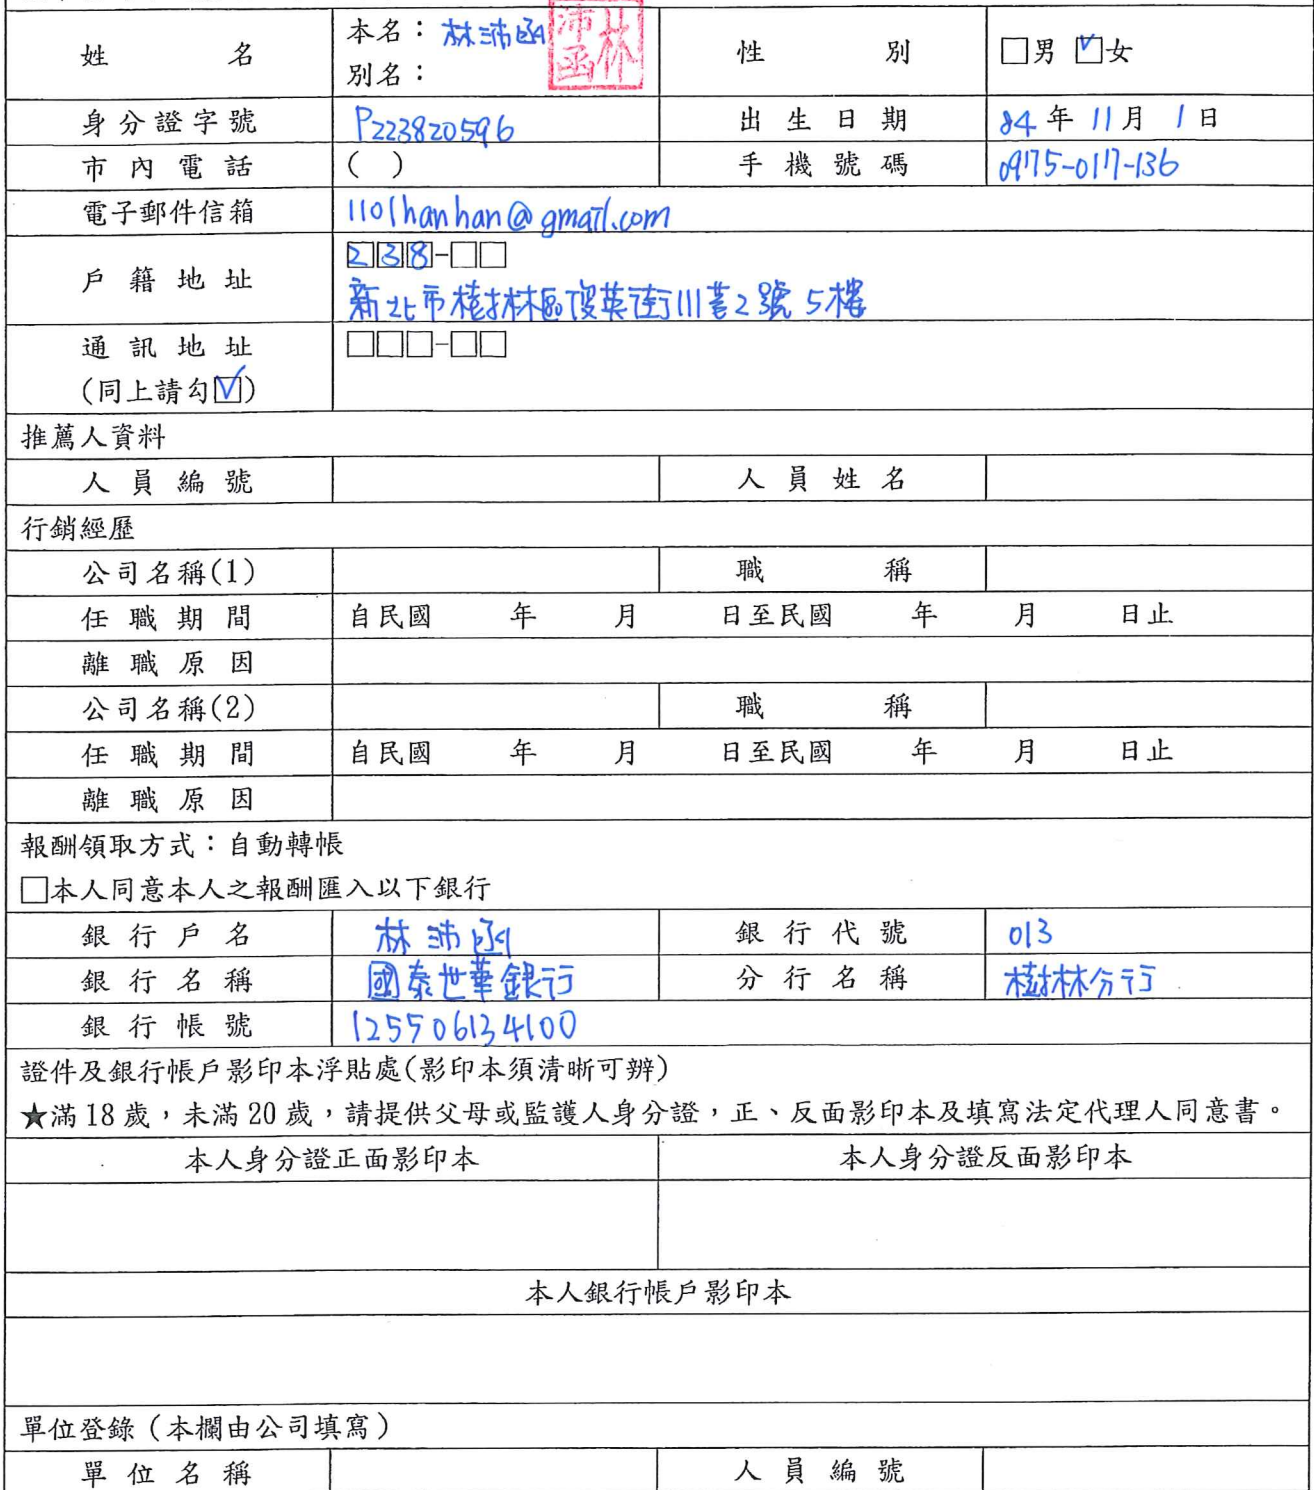 姓名 本名：林沛函 林沛函 性別 □男 ☑女
別名：
身分證字號 P223820596 出生日期 84年11月1日
市內電話 ( ) 手機號碼 0975-017-136
電子郵件信箱 1101hanhan@gmail.com
戶籍地址 238-□□
新北市樹林區俊英街111巷2號5樓
通訊地址 □□□-□□
(同上請勾☑)
推薦人資料
人員編號 人員姓名
行銷經歷
公司名稱(1) 職稱
任職期間 自民國 年 月 日至民國 年 月 日止
離職原因
公司名稱(2) 職稱
任職期間 自民國 年 月 日至民國 年 月 日止
離職原因
報酬領取方式：自動轉帳
□本人同意本人之報酬匯入以下銀行
銀行戶名 林沛函 銀行代號 013
銀行名稱 國泰世華銀行 分行名稱 樹林分行
銀行帳號 125506134100
證件及銀行帳戶影印本浮貼處(影印本須清晰可辨)
★滿18歲，未滿20歲，請提供父母或監護人身分證，正、反面影印本及填寫法定代理人同意書。
本人身分證正面影印本 本人身分證反面影印本
本人銀行帳戶影印本
單位登錄（本欄由公司填寫）
單位名稱 人員編號